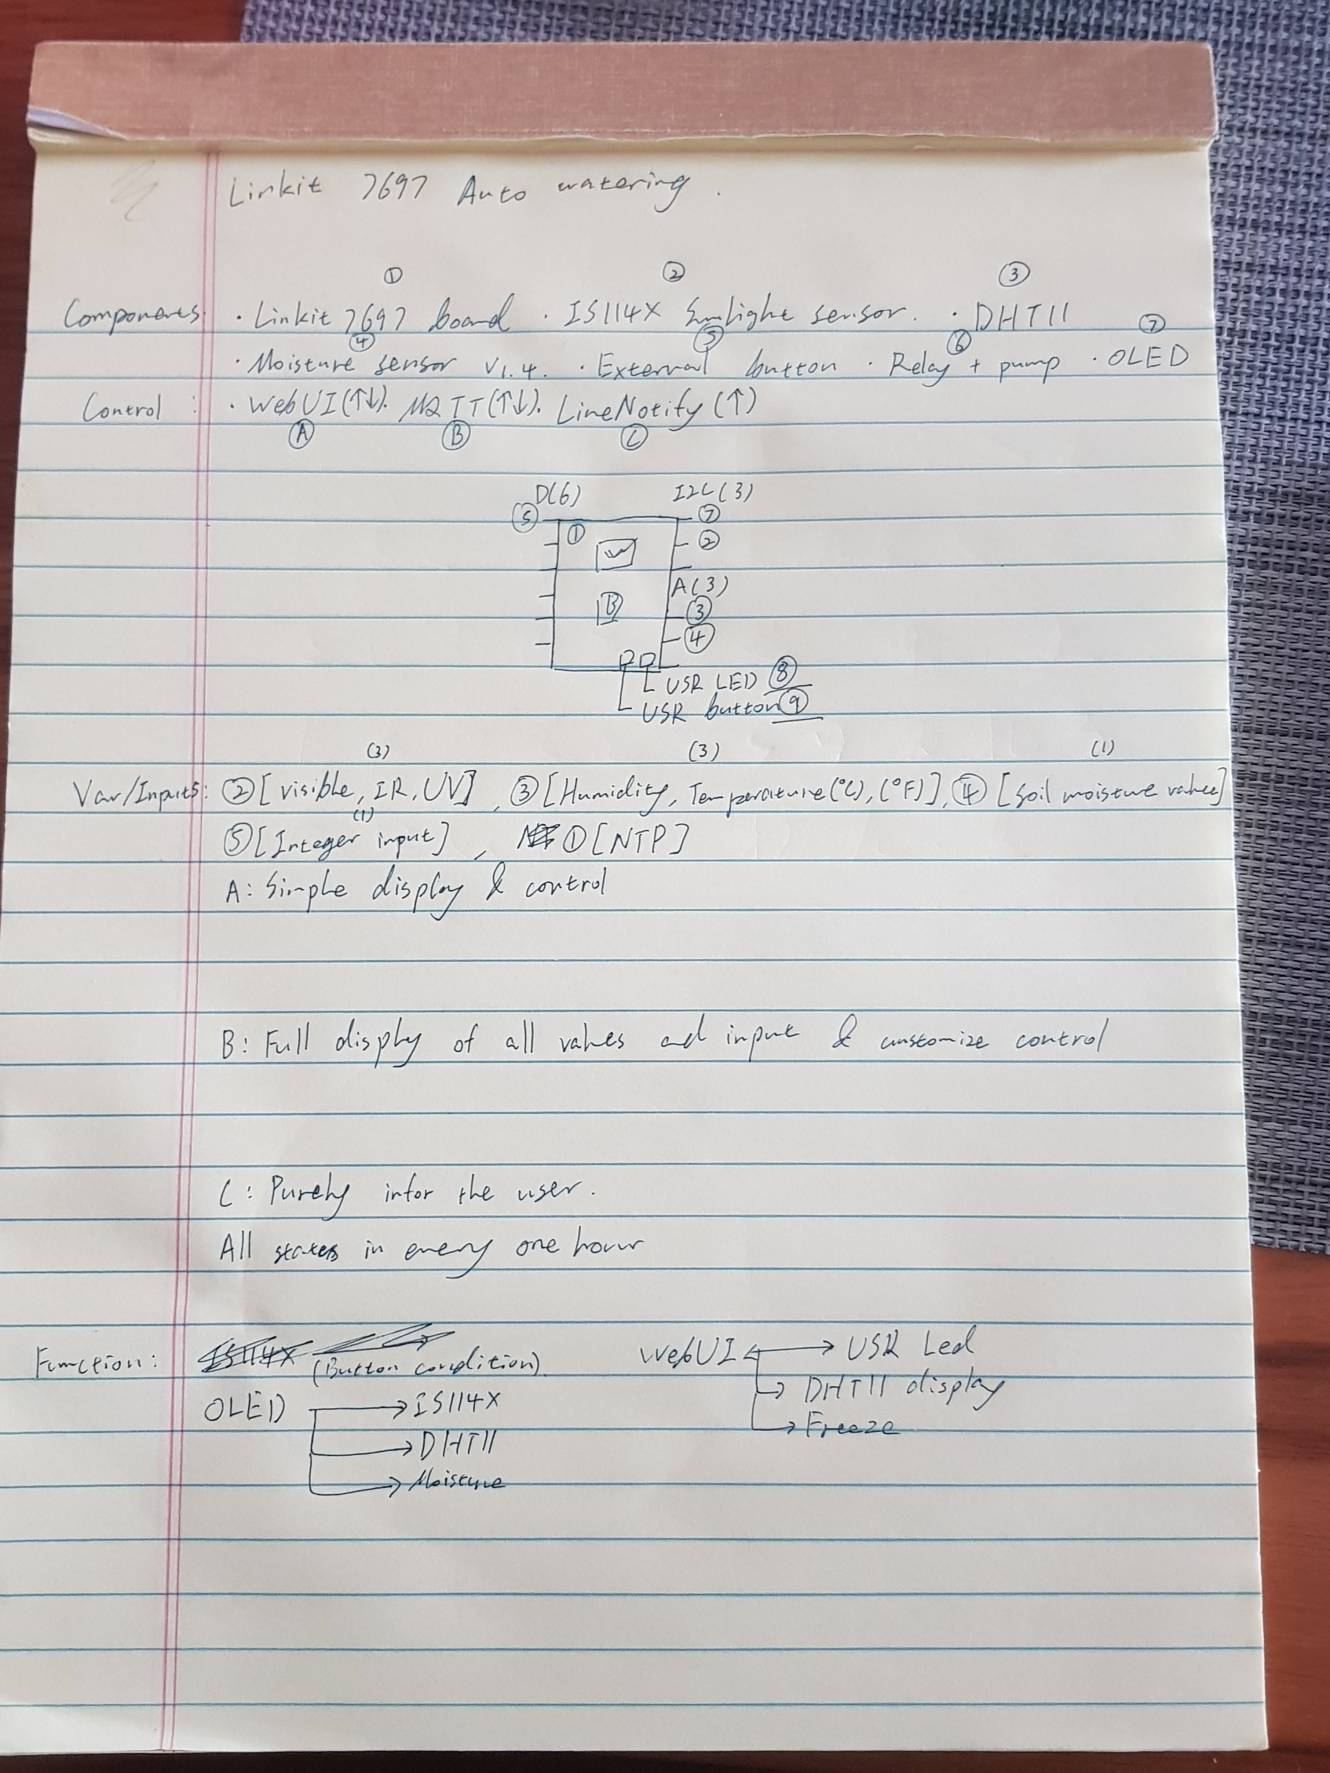 Linkit 7697 Auto watering.
① ② ③
Components: · Linkit 7697 board · IS114X Sunlight sensor. · DHT11
④ ⑤ ⑥ ⑦
· Moisture sensor v1.4. · External button · Relay + pump · OLED
Control : · WebUI(↑↓). MQTT(↑↓). LineNotify(↑)
Ⓐ Ⓑ Ⓒ
D(6) I2C(3)
⑤ ① ⑦
②
A(3)
B ③
④
USR LED ⑧
USR button ⑨
(3) (3) (1)
Var/Inputs: ②[visible, IR, UV], ③[Humidity, Temperature(°C), (°F)], ④[Soil moisture value]
(1)
⑤[Integer input], ①[NTP]
A: Simple display & control
B: Full display of all values and input & customize control
C: Purely infor the user.
All states in every one hour
Function: IS114X (Button condition). WebUI → USR Led
OLED → IS114X → DHT11 display
→ DHT11 → Freeze
→ Moisture